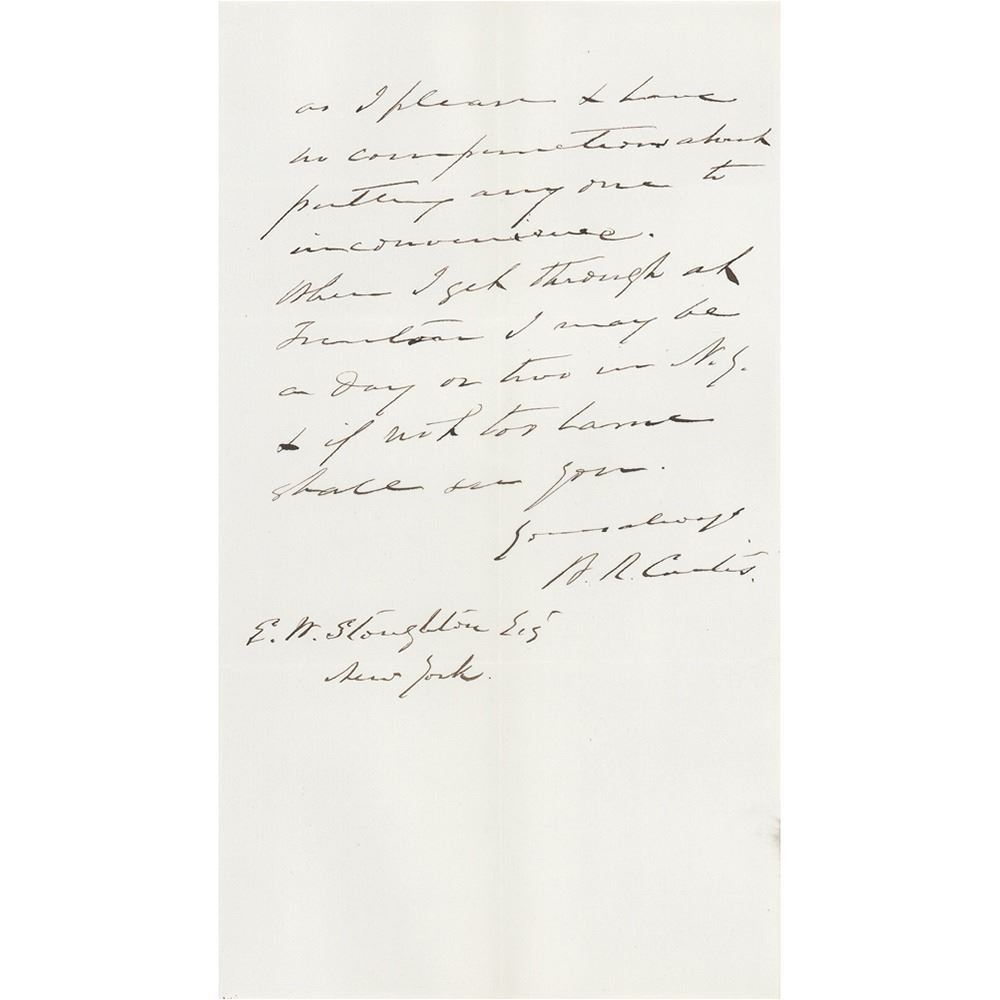 as I please & have
no compunctions about
putting any one to
inconvenience.
When I get through at
Trenton I may be
a day or two in N.Y.
& if not too lame
shall see you.
Yours always
B. R. Curtis.
E. W. Stoughton Esq
New York.